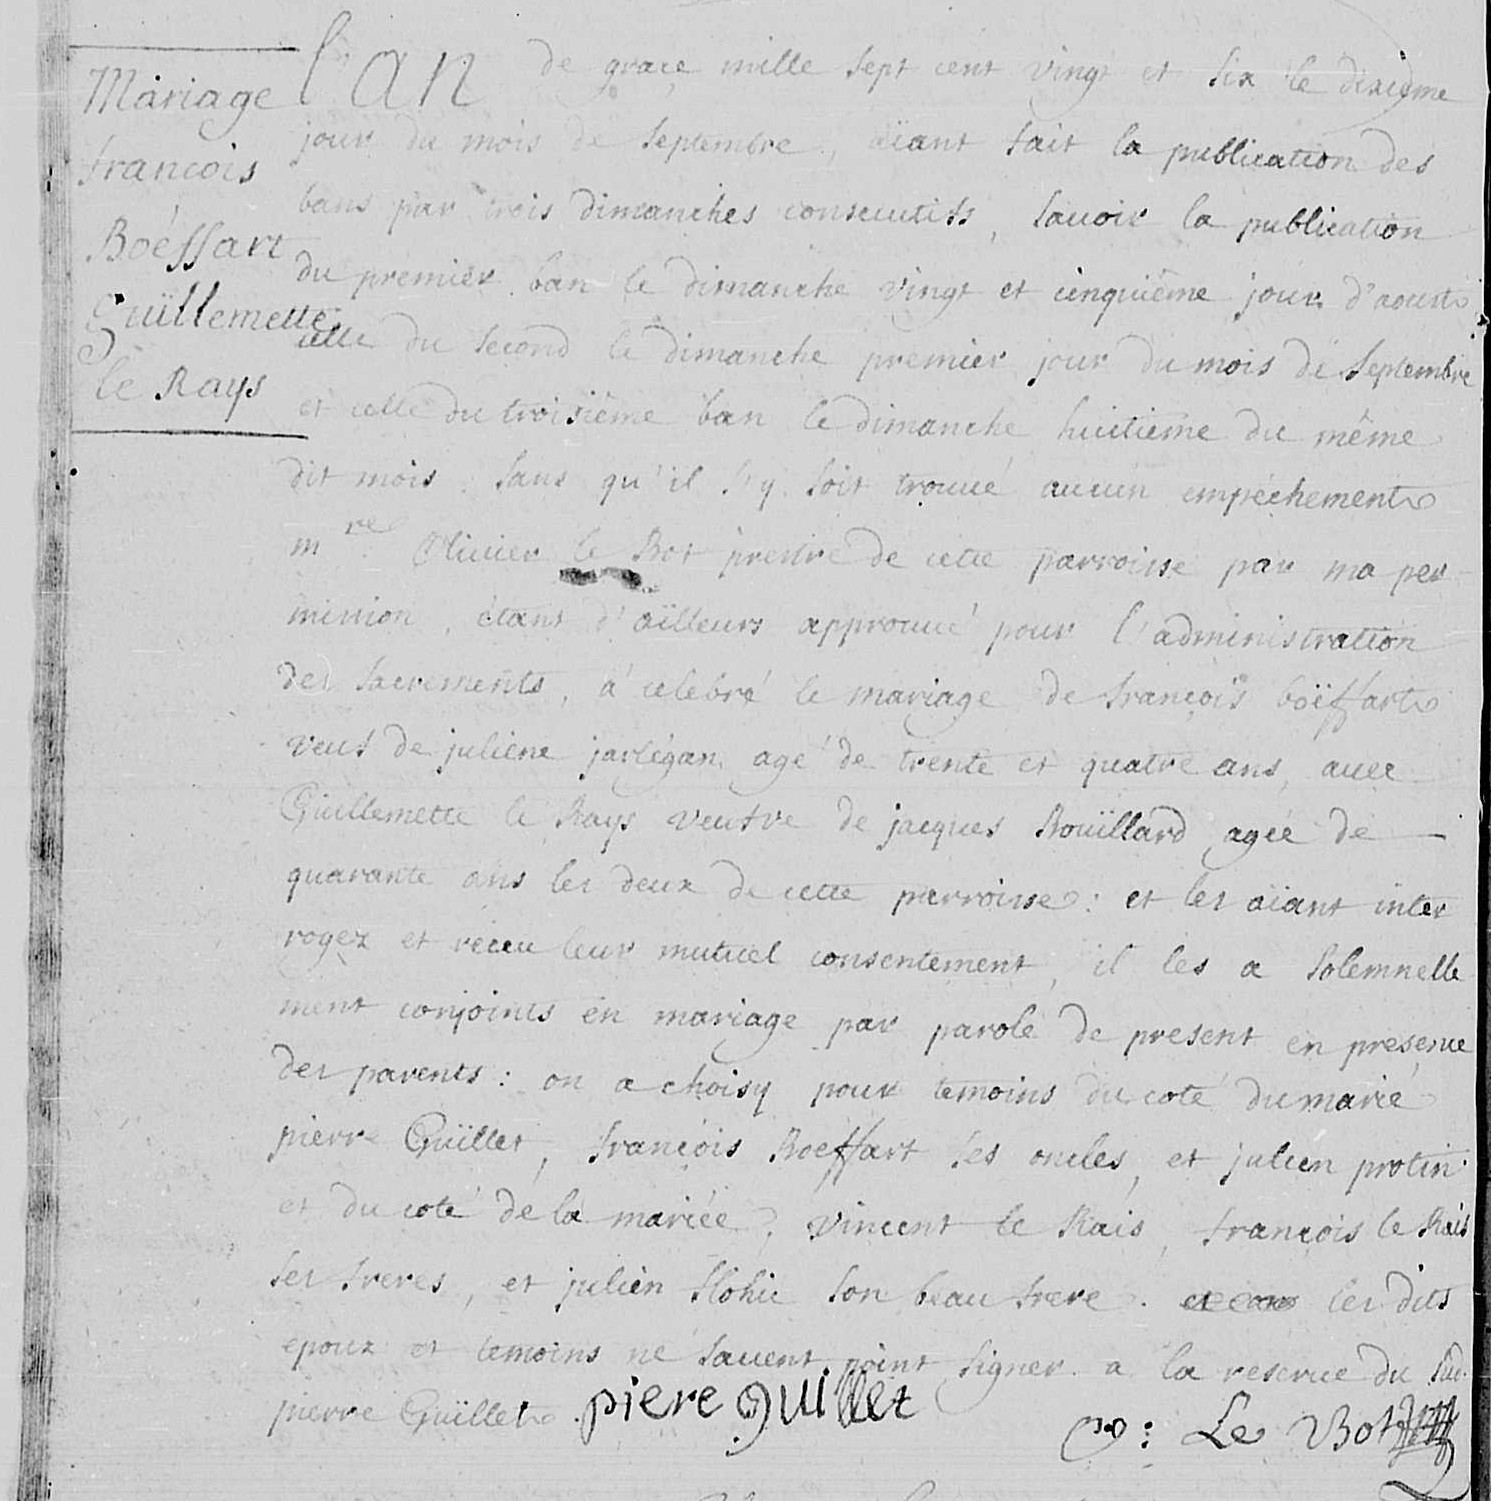 Mariage
francois
Boéssart
guïllemette
le Rays
l'an de grace mille sept cent vingt et six le dixieme
jour du mois de septembre, aïant fait la publication des
bans par trois dimanches consecutifs, sauoir la publication
du premier ban le dimanche vingt et cinquiême jour d'aoust
celle du second le dimanche premier jour du mois de septembre
et celle du troisiême ban le dimanche huitieme du même
dit mois sans qu'il s'y soit trouué aucun empéchement
mre Oliuier le Bot prestre de cette parroisse par ma per
mission, étant d'aïlleurs approuué pour l'administration
des sacrements, a celebré le mariage de françois boëssart
veuf de juliene jarlégan agé de trente et quatre ans, auec
Guillemette le Rays veufve de jacques Rouïllard agée de
quarante ans les deux de cette parroisse: et les aïant inter
rogez et receu leur mutuel consentement, il les a solemnelle
ment conjoints en mariage par parole de present en presence
des parents: on a choisy pour temoins du coté du marié
pierre Guïllet, françois Boessart ses oncles, et julien protin
et du coté de la mariée, vincent le Rais, françois le Rais
ses freres, et julien flohic son beau frere. les dits
epoux et temoins ne sauent point signer a la reserue du sud.
pierre Guïllet. piere guillet
o: Le Bot